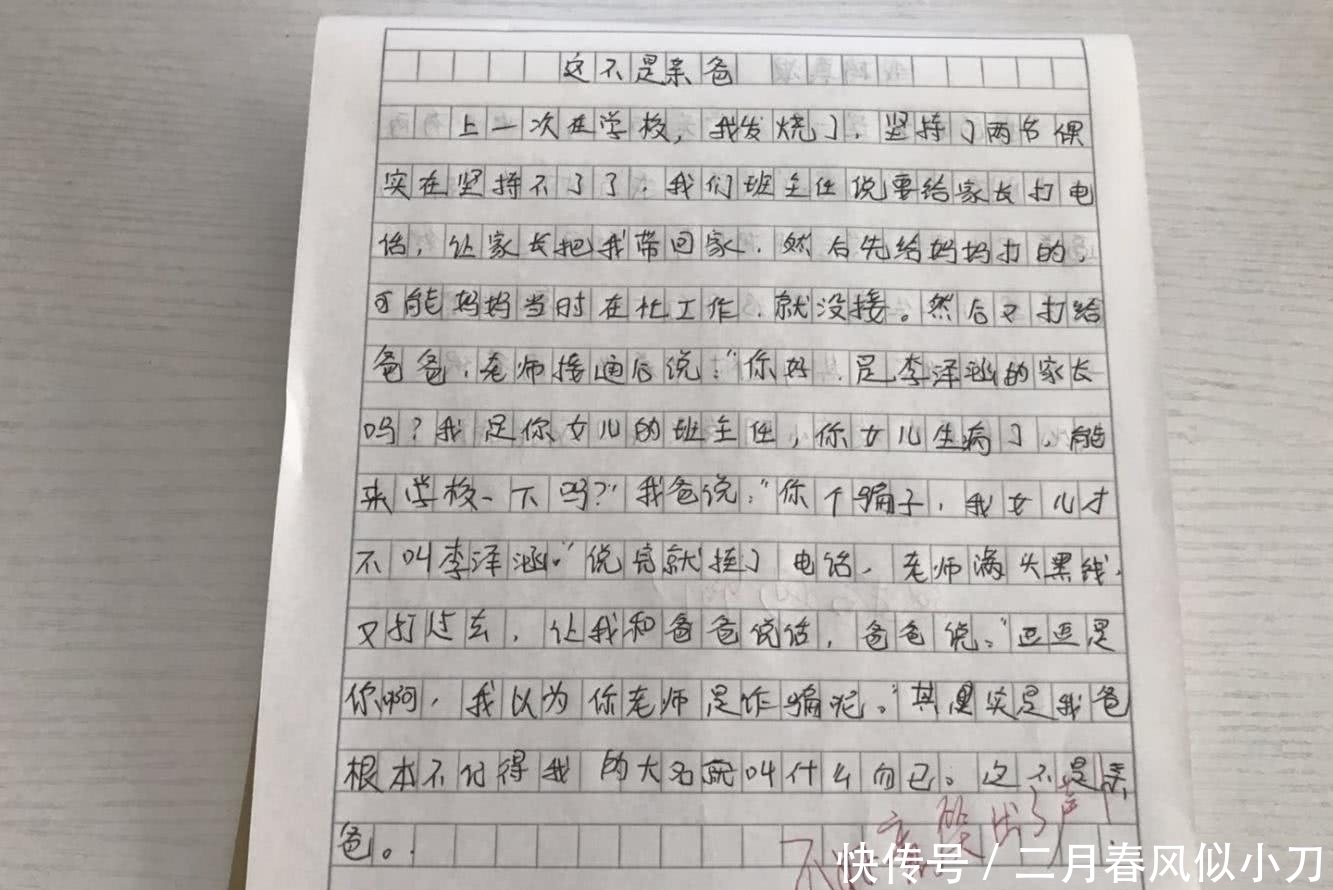 这不是亲爸
上一次在学校，我发烧了，坚持了两节课
实在坚持不了了，我们班主任说要给家长打电
话，让家长把我带回家，然后先给妈妈打的，
可能妈妈当时在忙工作，就没接。然后又打给
爸爸，老师接通后说：“你好，是李泽涵的家长
吗？我是你女儿的班主任，你女儿生病了，能
来学校一下吗？”我爸说：“你个骗子，我女儿才
不叫李泽涵。”说完就挂了电话，老师满头黑线，
又打过去，让我和爸爸说话，爸爸说：“豆豆是
你啊，我以为你老师是诈骗呢。”其实是我爸
根本不记得我的大名叫什么而已。这不是亲
爸。
不
出了声
快传号 / 二月春风似小刀